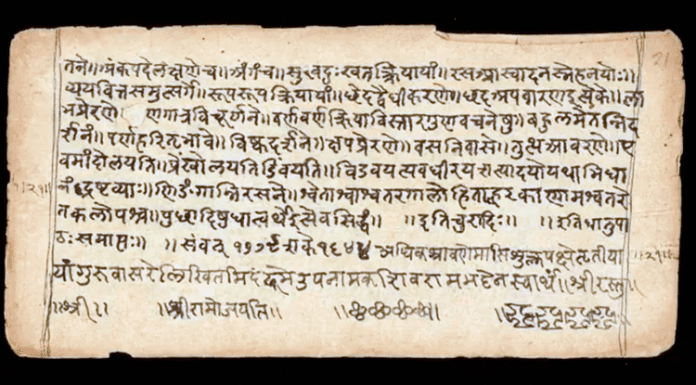 तने॥अंकपदेलक्षणेच॥अंगच॥सुखदुःखतत्क्रियायां॥रसआस्वादनस्नेहनयोः॥
व्ययवित्तसमुत्सर्गे॥रूपरूपक्रियायां॥छेदद्वैधीकरणे॥छदअपवारणइत्येके॥ला
भप्रेरणे॥ व्रणगात्रविचूर्णने॥वर्णवर्णक्रियाविस्तारगुणवचनेषु॥बहुलमेतन्निद
र्शनं॥पर्णहरितभावे॥विष्कदर्शने॥क्षपप्रेरणे॥वसनिवासे॥तुत्थआवरणे॥ए
वमांदोलयति॥प्रेंखोलयतिडिंवयति॥विडवयत्यवधीरयत्यादयोयथाभिधा
नंद्रष्टव्याः॥णिङंगान्निरसने॥श्वेताश्वाश्वतरगालोडिताह्वरकाणामश्वतरे
तकलोपश्च॥पुच्छादिषुधात्वर्थइत्येवसिद्धं॥ ॥इतिचुरादिः॥ ॥इतिधातुपा
ठःसमाप्तः॥ ॥संवत् १७७९शके१६४४ अधिकश्रावणेमासिशुक्लपक्षेतृतीया
यांगुरुवासरेलिखितमिदं उपनामक स्वार्थं॥श्रीरस्तु॥
॥श्री॥ ॥श्रीरामोजयति॥